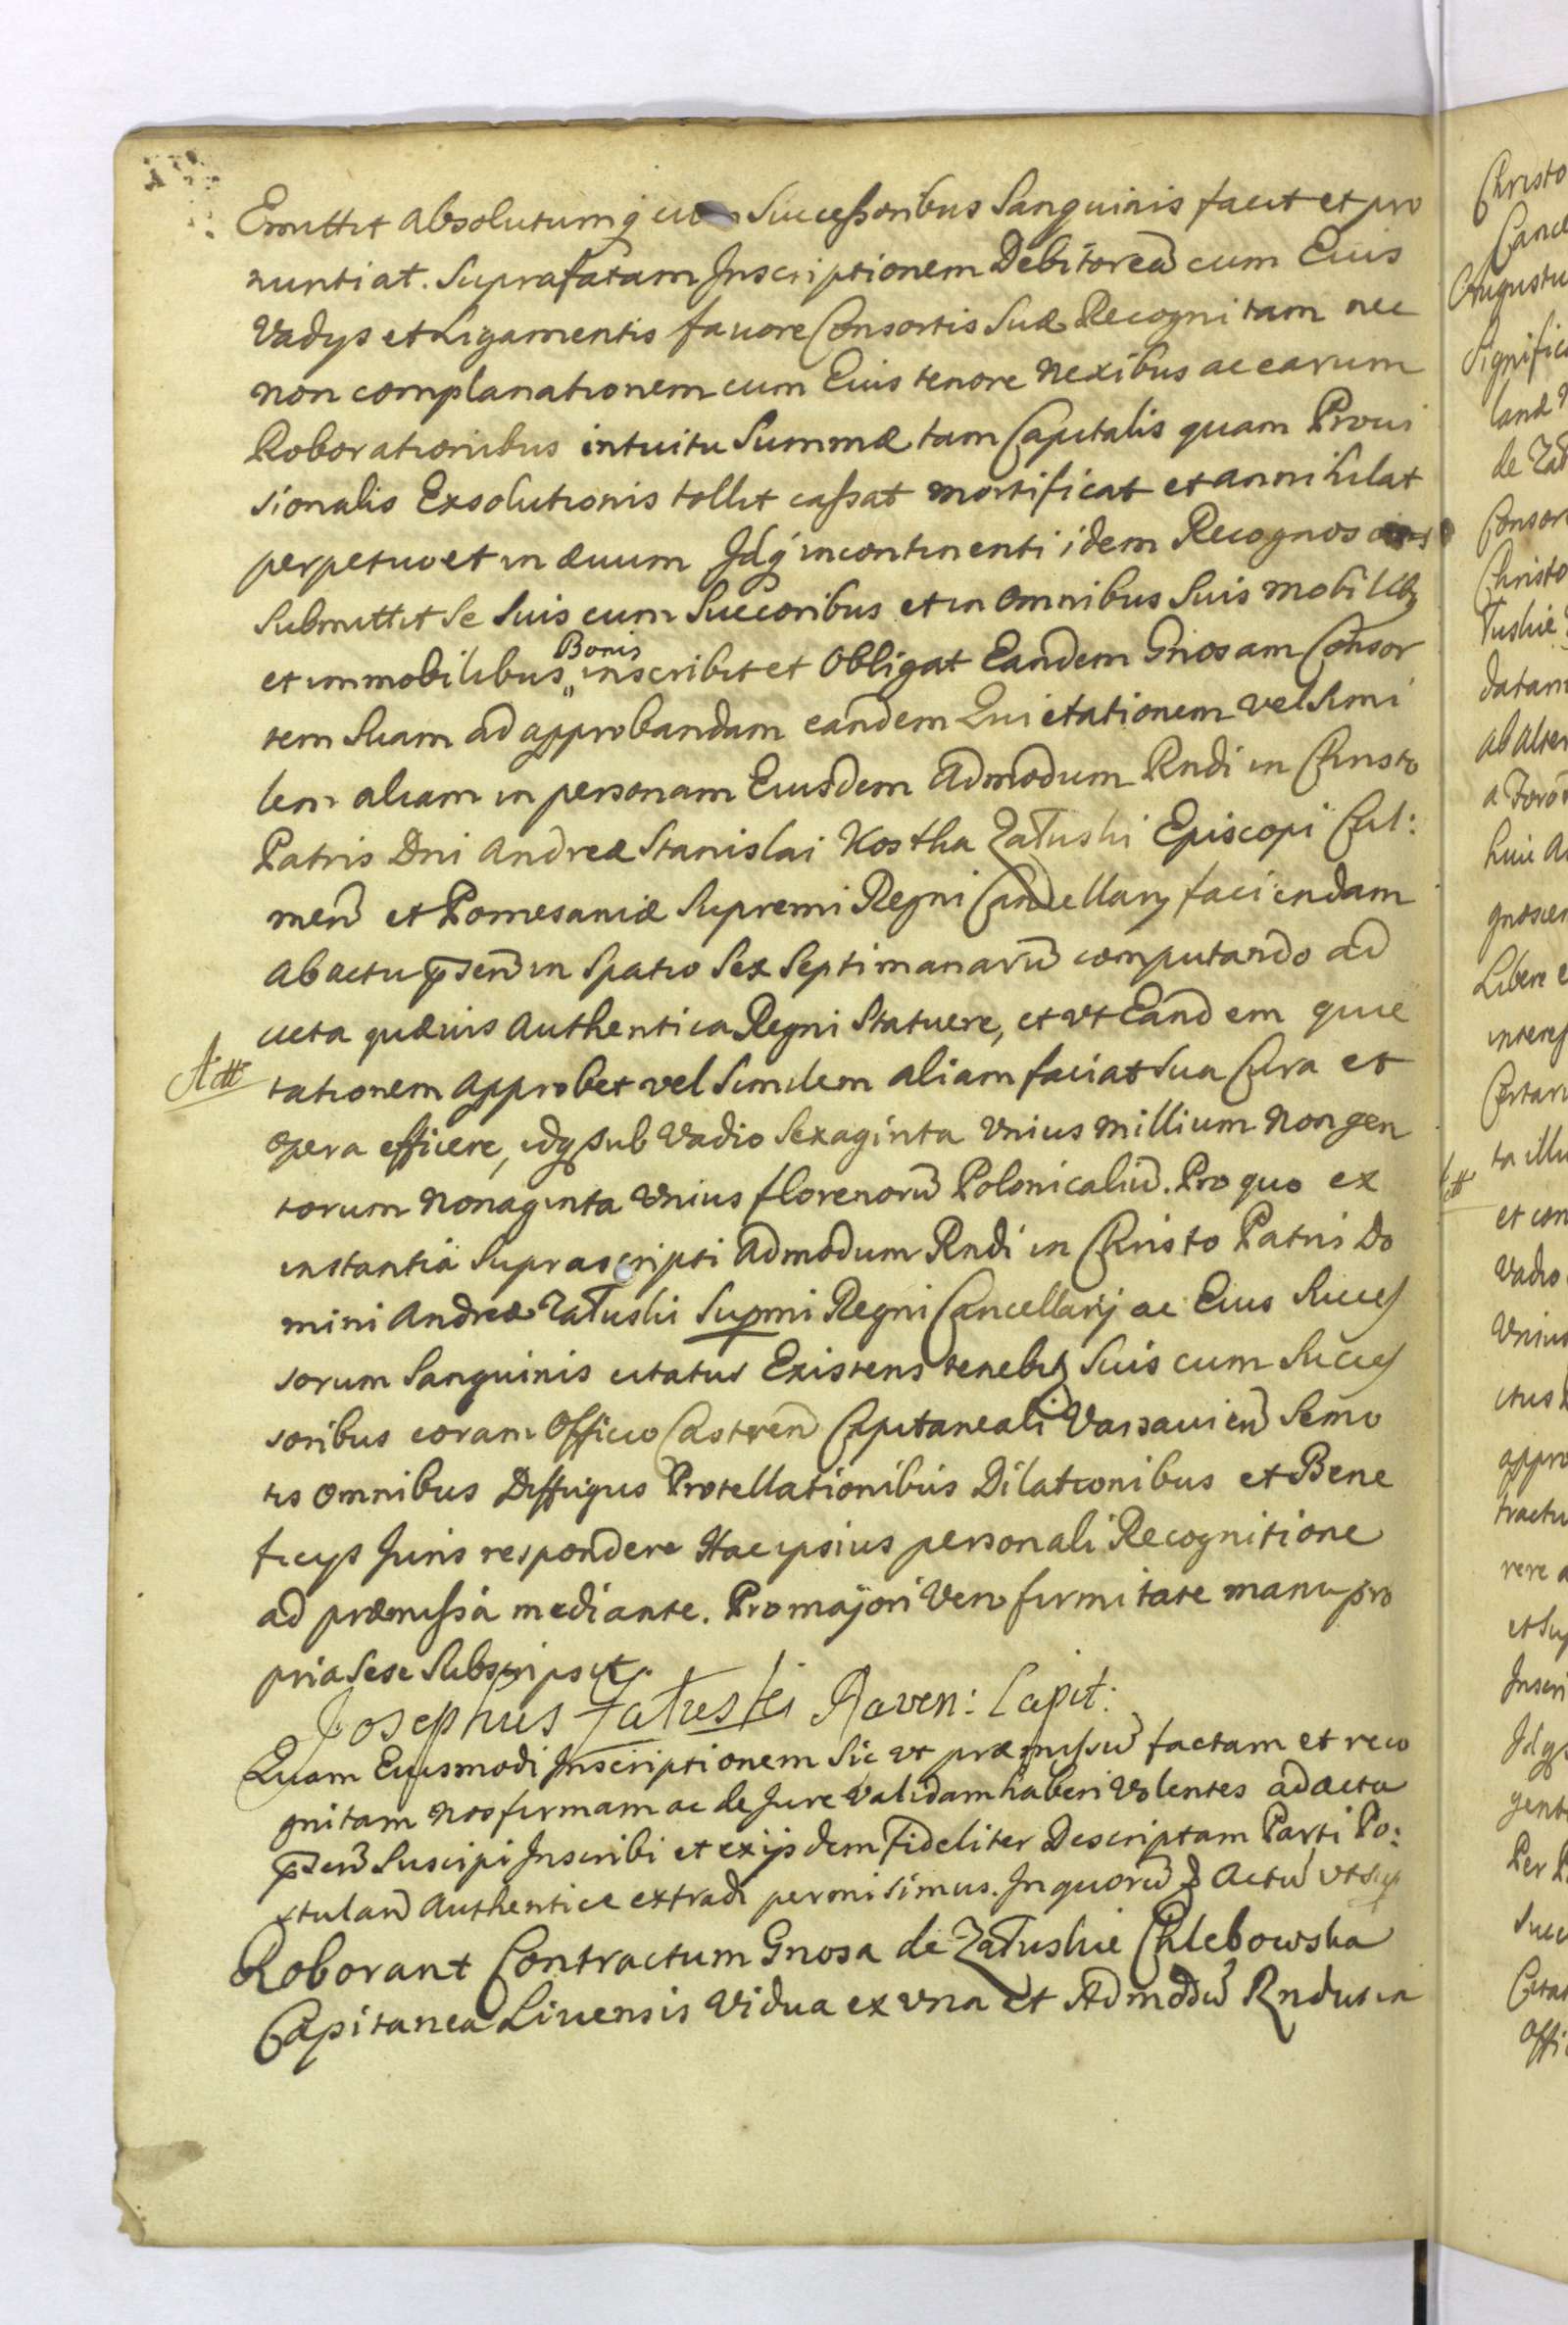 Emittit absolutumq cum Successoribus Sanguinis facit et pro
nuntiat. Suprafatam Inscriptionem Debitoream cum Eius
Vadys et Ligamentis favore Consortis Suæ Recognitam nec
non complanationem cum Eius tenore nexibus ac earum
Roborationibus intuitu Summæ tam Capitalis quam Provi
sionalis Exsolutionis tollit cassat mortificat et annihilat
perpetuo et in ævum Idq incontinenti idem Recognoscens
Submittit Se Suis cum Succoribus et in Omnibus Suis mobilibq
et immobilibus Bonis inscribit et Obligat Eandem Gnosam Consor
tem Suam ad approbandam eandem Quietationem vel simi
lem aliam in personam Eiusdem Admodum Rndi in Christo
Patris Dni Andreæ Stanislai Kostka Załuski Episcopi Cul:
men et Pomesaniæ Supremi Regni Cancellary faciendam
ab actu psen in Spatio Sex Septimanaru computando ad
acta quævis Authentica Regni Statuere, et vt Eandem quie
Att
tationem approbet vel Similem aliam faciat Sua Cura et
Opera efficere, idq sub Vadio Sexaginta Vnius millium Nongen
torum Nonaginta Vnius florenoru Polonicaliu. Pro quo ex
instantia Suprascripti Admodum Rndi in Christo Patris Do
mini Andreæ Załuski Supmi Regni Cancellarij ac Eius Succes
sorum Sanguinis citatus Existens tenebitq Suis cum Succes
soribus coram Officio Castren Capitaneali Varsavien Semo
tis Omnibus Diffugus Protellationibus Dilationibus et Bene
ficys Juris respondere Hac ipsius personali Recognitione
ad præmissa mediante. Pro majori Vero firmitate manu pro
pria Sese Subscripsit.
Josephus Załuski Raven: Capit:
Quam Eiusmodi Inscriptionem Sic vt præmissu factam et reco
gnitam Nos firmam ac de Jure Validam haberi Volentes ad acta
psen Suscipi Inscribi et exijsdem Fideliter Descriptam Parti Po:
stulan Authentice extradi permisimus. In quoru Actu vt Sup
Roborant Contractum Gnosa de Załuskie Chlebowska
Capitanea Livensis Vidua ex vna et Admodu Rndus in